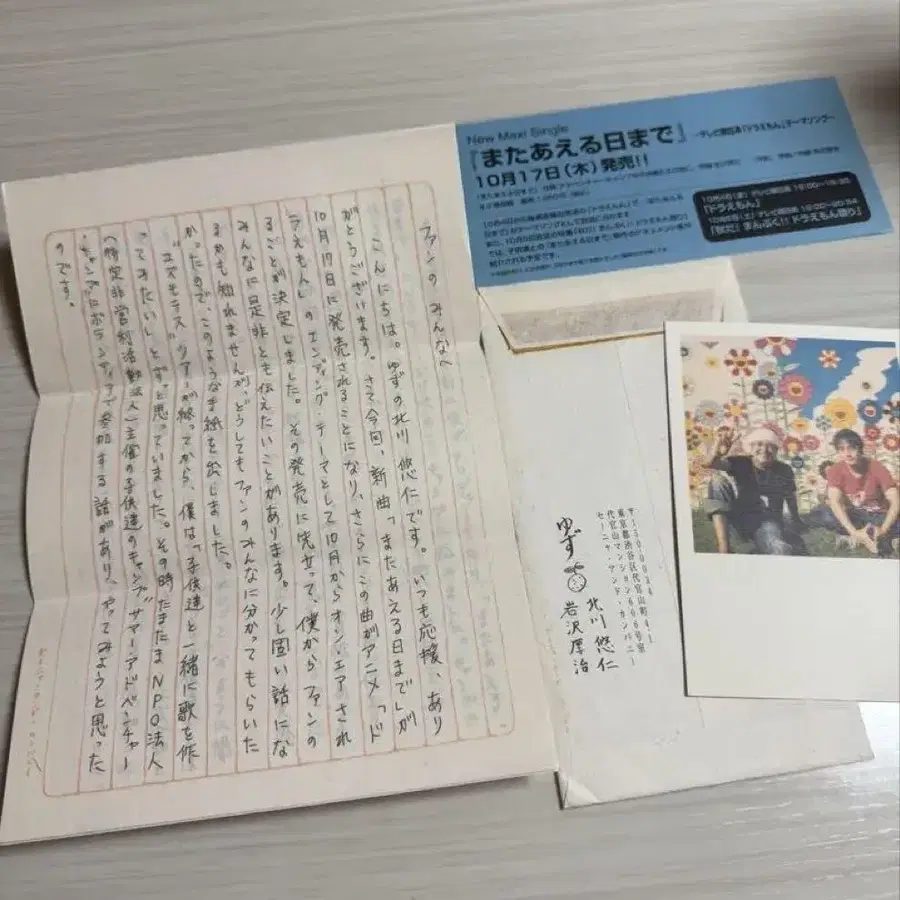 ファンのみんなへ
こんにちは。ゆずの北川悠仁です。いつも応援、あり
がとうございます。さて今回、新曲「またあえる日まで」が
10月17日に発売されることになり、さらにこの曲がアニメ「ド
ラえもん」のエンディング・テーマとして10月からオン・エアされ
ることが決定しました。その発売に先立って、僕からファンの
みんなに是非とも伝えたいことがあります。少し固い話にな
るかも知れませんが、どうしてもファンのみんなに分かってもらいた
かったので、このような手紙を出しました。
“ユズモラス”ツアーが終ってから、僕は「子供達と一緒に歌を作
ってみたい」とずっと思っていました。その時たまたまNPO法人
(特定非営利活動法人)主催の子供達のキャンプ“サマー・アドベンチャー
・キャンプ”にボランティアで参加する話があり、やってみようと思った
のです。
New Maxi Single
『またあえる日まで』
〜テレビ朝日系「ドラえもん」テーマソング〜
10月17日(木)発売!!
10月4日(金)テレビ朝日系 19:00〜19:30
『ドラえもん』
『秋だ!まんぷく!!ドラえもん祭り』
〒1500034
東京都渋谷区代官山町
代官山マンション606号室
セーニャ・アンド・カンパニー
ゆず
北川悠仁
岩沢厚治